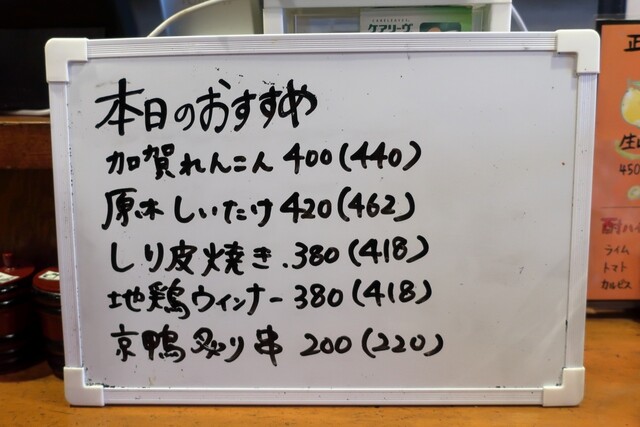 ケアリーヴ
本日のおすすめ
加賀れんこん 400(440)
原木しいたけ 420(462)
しり皮焼き.380(418)
地鶏ウィンナー380(418)
京鴨炙り串 200(220)
正
生
450
酎ハイ
ライム
トマト
カルピス